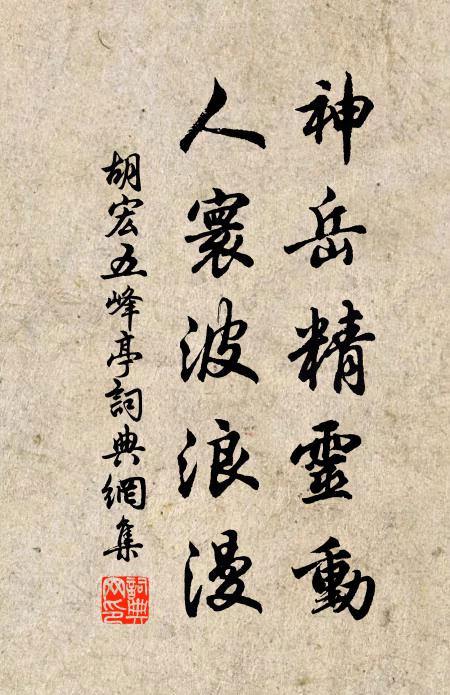 神岳精靈動
人寰波浪漫
胡宏五峰亭詞典網集
詞典网印